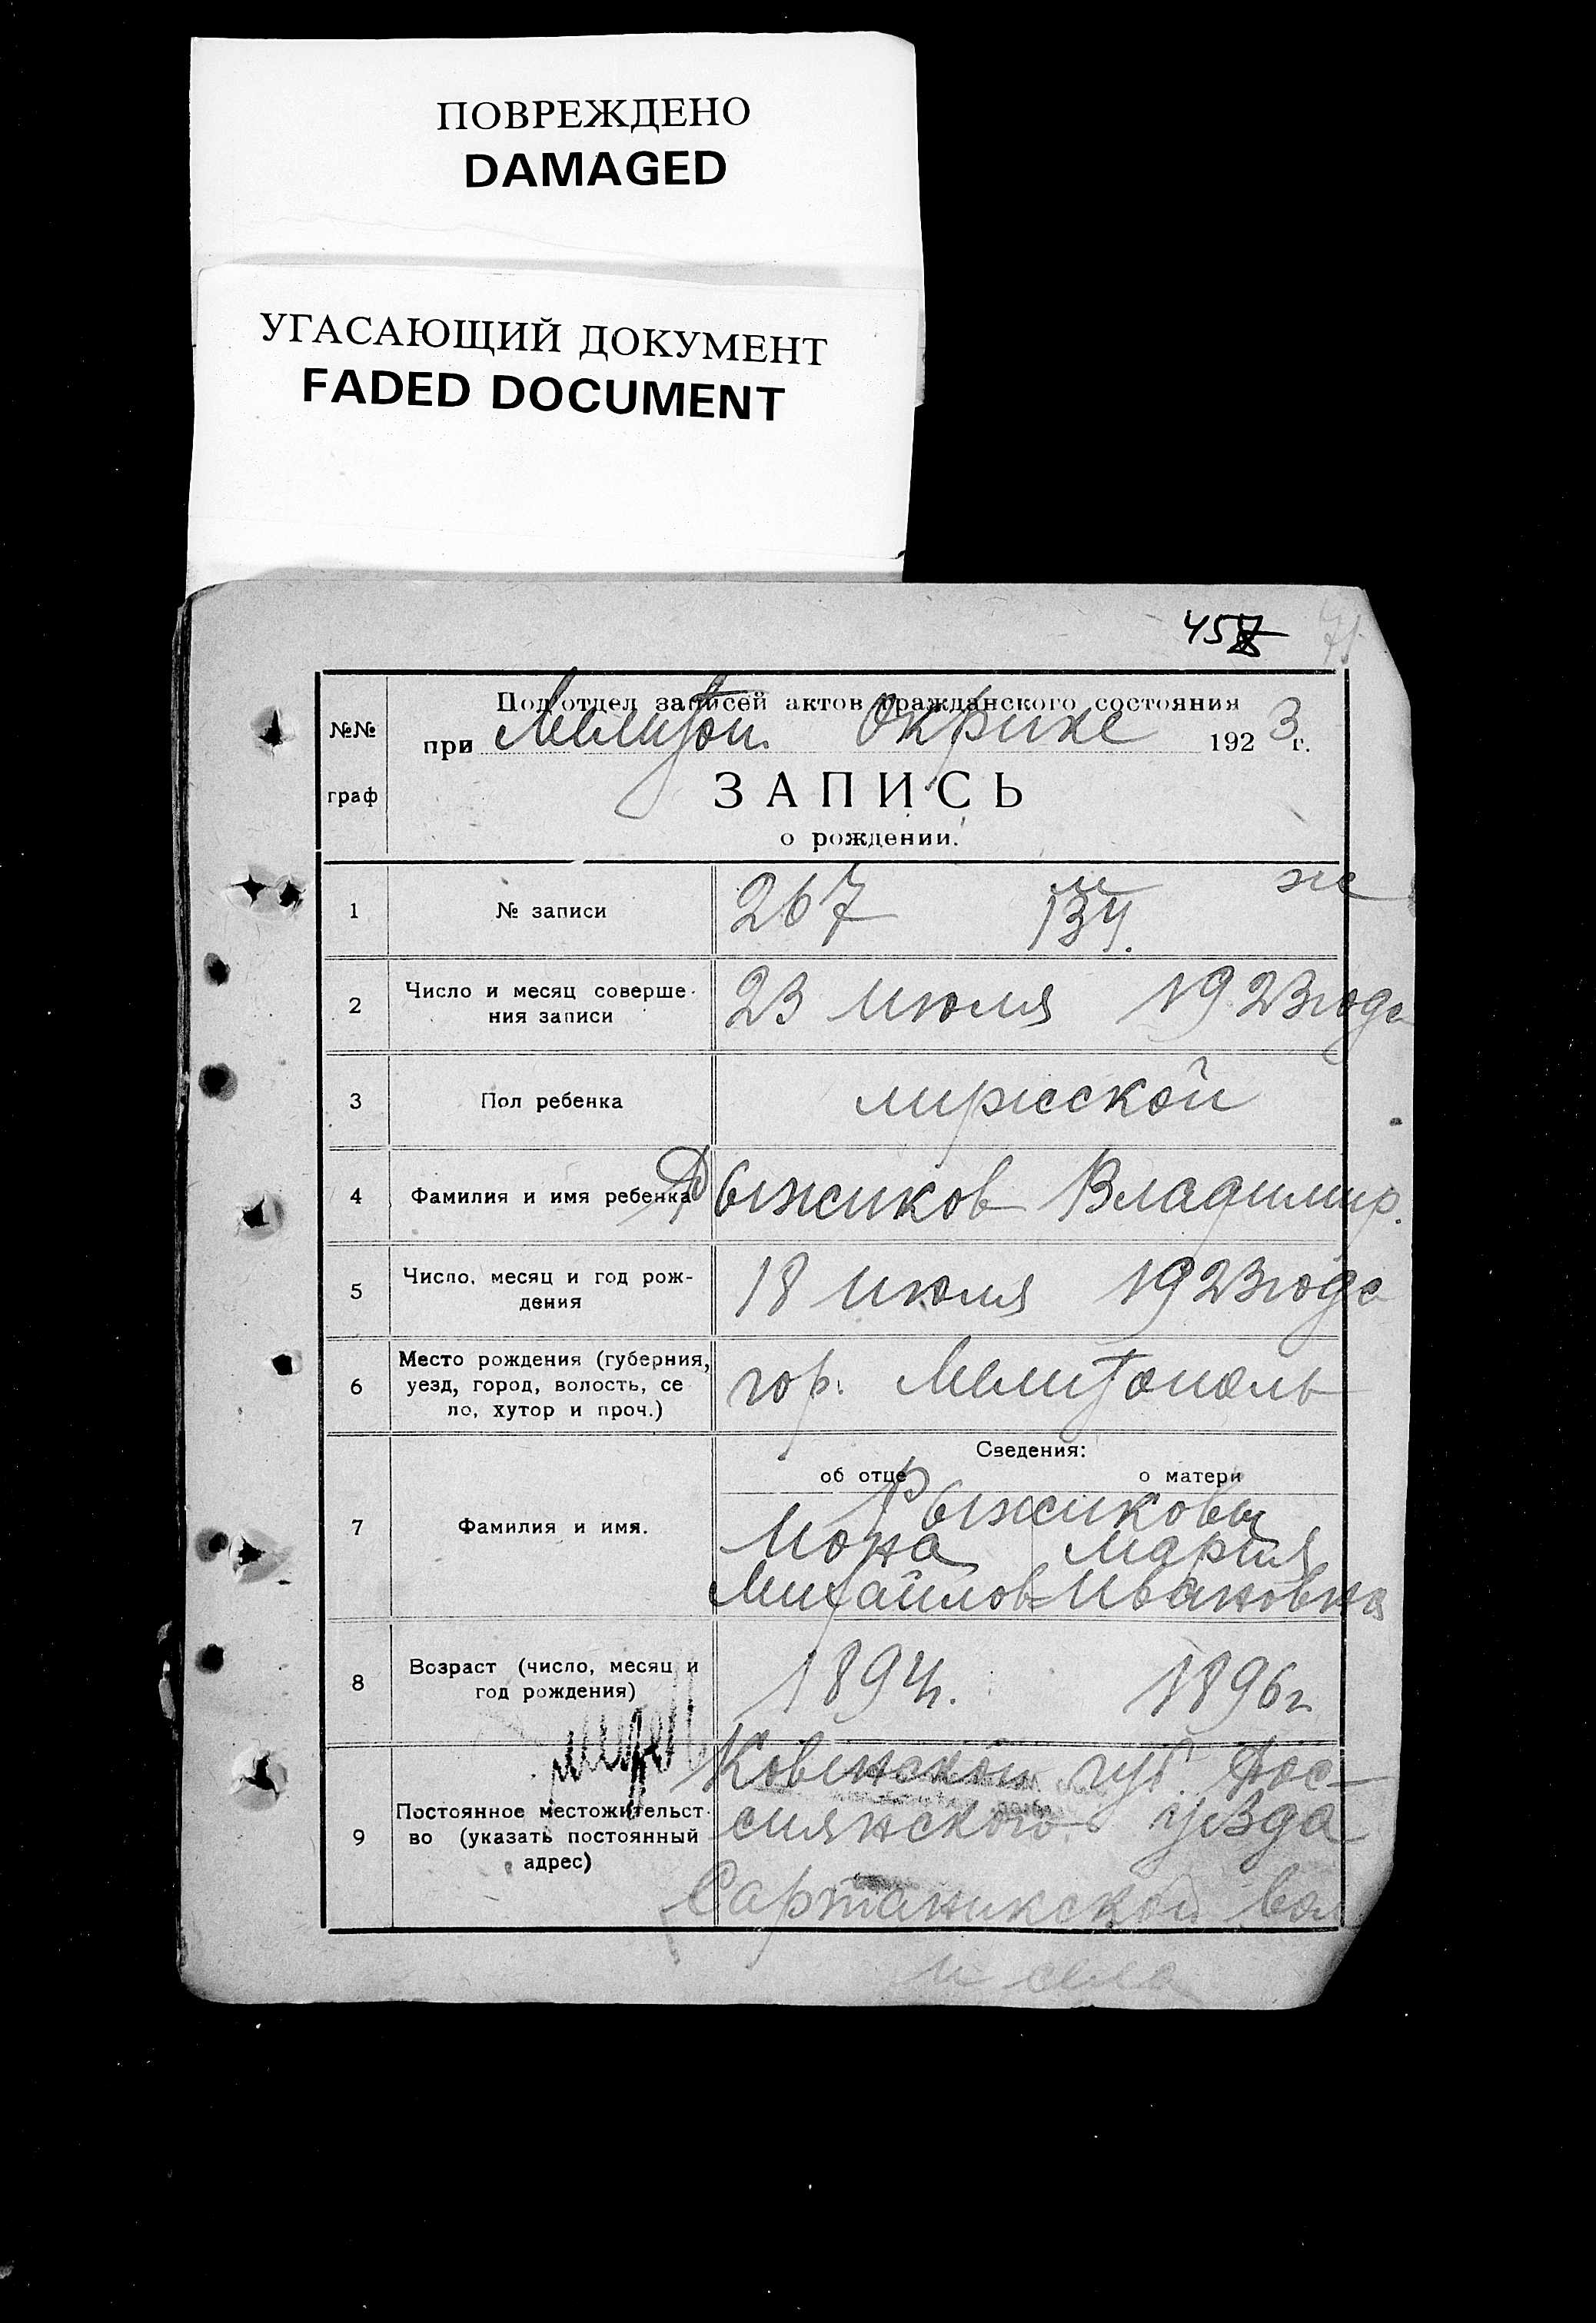 ПОВРЕЖДЕНО
DAMAGED
УГАСАЮЩИЙ ДОКУМЕНТ
FADED DOCUMENT
458 71
№№ граф
Подотдел записей актов гражданского состояния
при Мелитоп. Окрике 1923 г.
ЗАПИСЬ
о рождении.
1 № записи 267
2 Число и месяц соверше-
ния записи 23 июля 1923 года
3 Пол ребенка мужеской
4 Фамилия и имя ребенка Рыжиков Владимир.
5 Число, месяц и год рож-
дения 18 июля 1923 года
6 Место рождения (губерния,
уезд, город, волость, се
ло, хутор и проч.) гор. Мелитополь
Сведения:
об отце о матери
7 Фамилия и имя. Рыжиковы
Мона Мария
Михайлов Ивановна
8 Возраст (число, месяц и
год рождения) 1894г. 1896г
9 Постоянное местожительст-
во (указать постоянный
адрес) Ковенской губ. Рос-
сиянского уезда
вол
и села